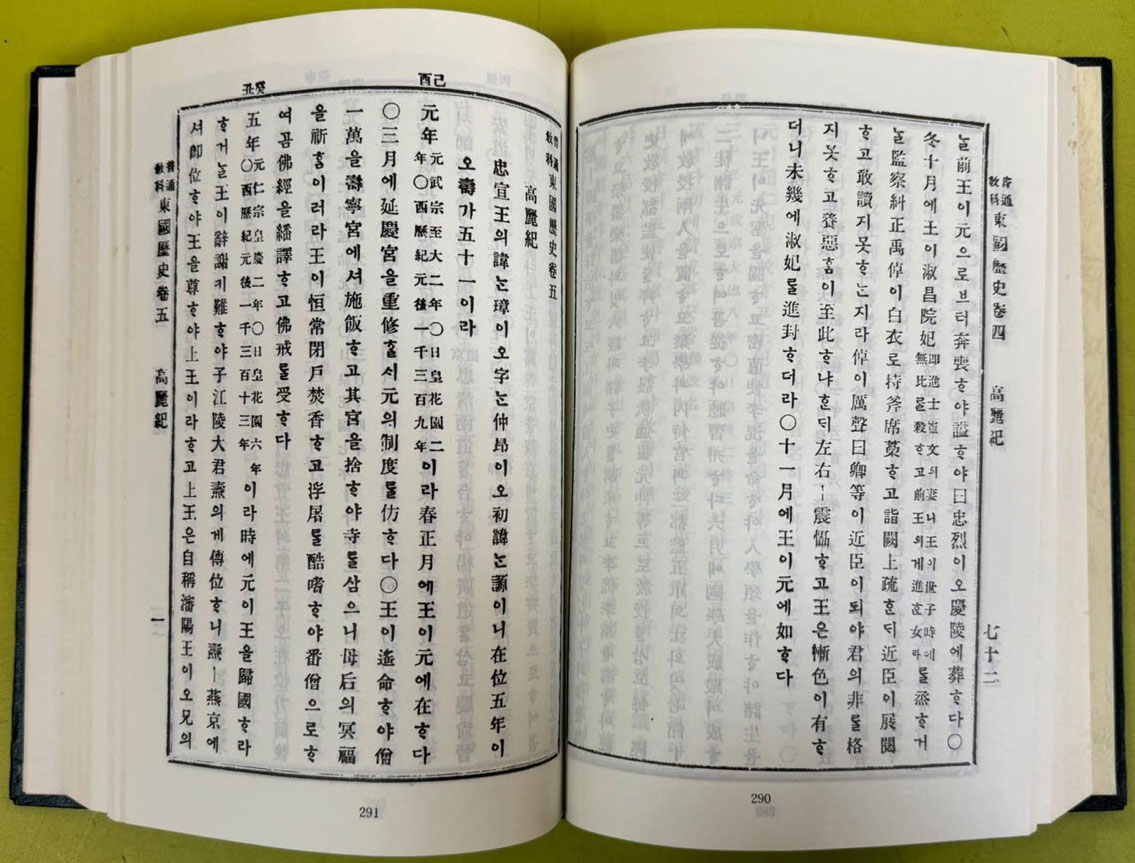 普通教科東國歷史卷四 高麗紀 七十二
ᄂᆞᆯ前王이元으로브터奔喪ᄒᆞ야諡ᄒᆞ야曰忠烈이오慶陵에葬ᄒᆞ다〇
冬十月에王이淑昌院妃即進士崔文의妻니王이世子時에無比ᄅᆞᆯ殺ᄒᆞ고前王의게進ᄒᆞᆫ女라ᄅᆞᆯ烝ᄒᆞ거
ᄂᆞᆯ監察糾正禹倬이白衣로持斧席藁ᄒᆞ고詣闕上疏ᄒᆞᆫᄃᆡ近臣이展閱
ᄒᆞ고敢讀지못ᄒᆞᄂᆞᆫ지라倬이厲聲曰卿等이近臣이되야君의非ᄅᆞᆯ格
지못ᄒᆞ고養惡ᄒᆞᆷ이至此ᄒᆞ냐ᄒᆞᆫᄃᆡ左右ㅣ震慴ᄒᆞ고王은慚色이有ᄒᆞ
더니未幾에淑妃ᄅᆞᆯ進封ᄒᆞ더라〇十一月에王이元에如ᄒᆞ다
290
普通教科東國歷史卷五
高麗紀
忠宣王의諱ᄂᆞᆫ璋이오字ᄂᆞᆫ仲昂이오初諱ᄂᆞᆫ謜이니在位五年이
오壽가五十一이라
己酉
元年元武宗至大二年〇日皇花園二年〇西歷紀元後一千三百九年이라春正月에王이元에在ᄒᆞ다
〇三月에延慶宮을重修ᄒᆞᆯᄉᆡ元의制度ᄅᆞᆯ仿ᄒᆞ다〇王이遙命ᄒᆞ야僧
一萬을壽寧宮에셔施飯ᄒᆞ고其宮을捨ᄒᆞ야寺ᄅᆞᆯ삼으니母后의冥福
을祈ᄒᆞᆷ이러라王이恒常閉戶焚香ᄒᆞ고浮屠ᄅᆞᆯ酷嗜ᄒᆞ야番僧으로ᄒᆞ
여곰佛經을繙譯ᄒᆞ고佛戒ᄅᆞᆯ受ᄒᆞ다
癸丑
五年元仁宗皇慶二年〇日皇花園六年〇西歷紀元後一千三百十三年이라時에元이王을歸國ᄒᆞ라
ᄒᆞ거ᄂᆞᆯ王이辭謝키難ᄒᆞ야子江陵大君燾의게傳位ᄒᆞ니燾ㅣ燕京에
셔卽位ᄒᆞ야王을尊ᄒᆞ야上王이라ᄒᆞ고上王은自稱瀋陽王이오兄의
普通教科東國歷史卷五 高麗紀 一
291